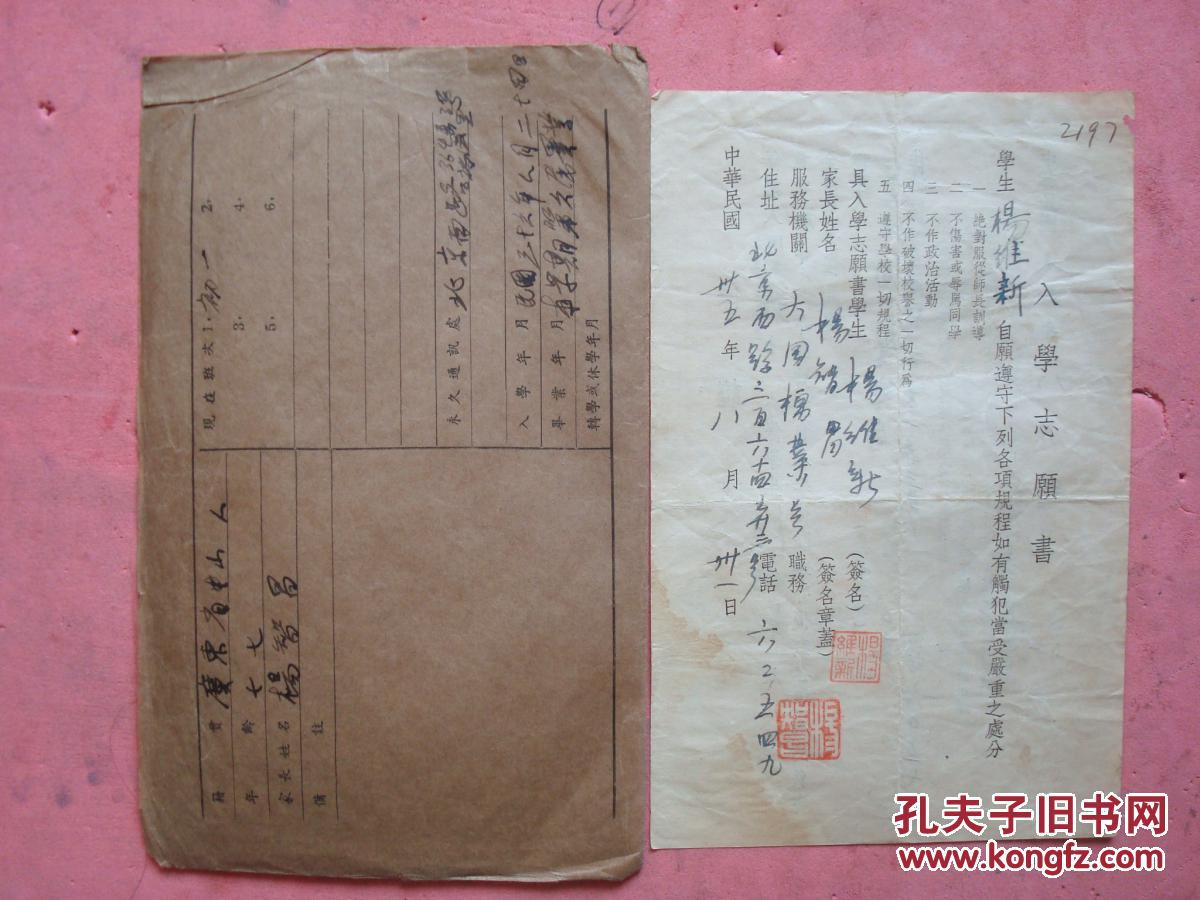 籍貫 廣東省中山人
年齡 十七
家長姓名 楊智昌
備註
現在班次 1. 初一 2.
3. 4.
5. 6.
永久通訊處 北京西路
入學年月 民國三十六年八月二十四日
畢業年月
轉學或休學年月
2197
入學志願書
學生 楊維新 自願遵守下列各項規程如有觸犯當受嚴重之處分
一 絕對服從師長訓導
二 不傷害或辱罵同學
三 不作政治活動
四 不作破壞校譽之一切行為
五 遵守學校一切規程
具入學志願書學生 楊維新 (簽名)
楊維新
家長姓名 楊智昌 (簽名章蓋)
服務機關 大同 業 職務
住址 北京西路 電話 六二五四九
中華民國 卅五年 八月 卅一日
孔夫子旧书网
www.kongfz.com